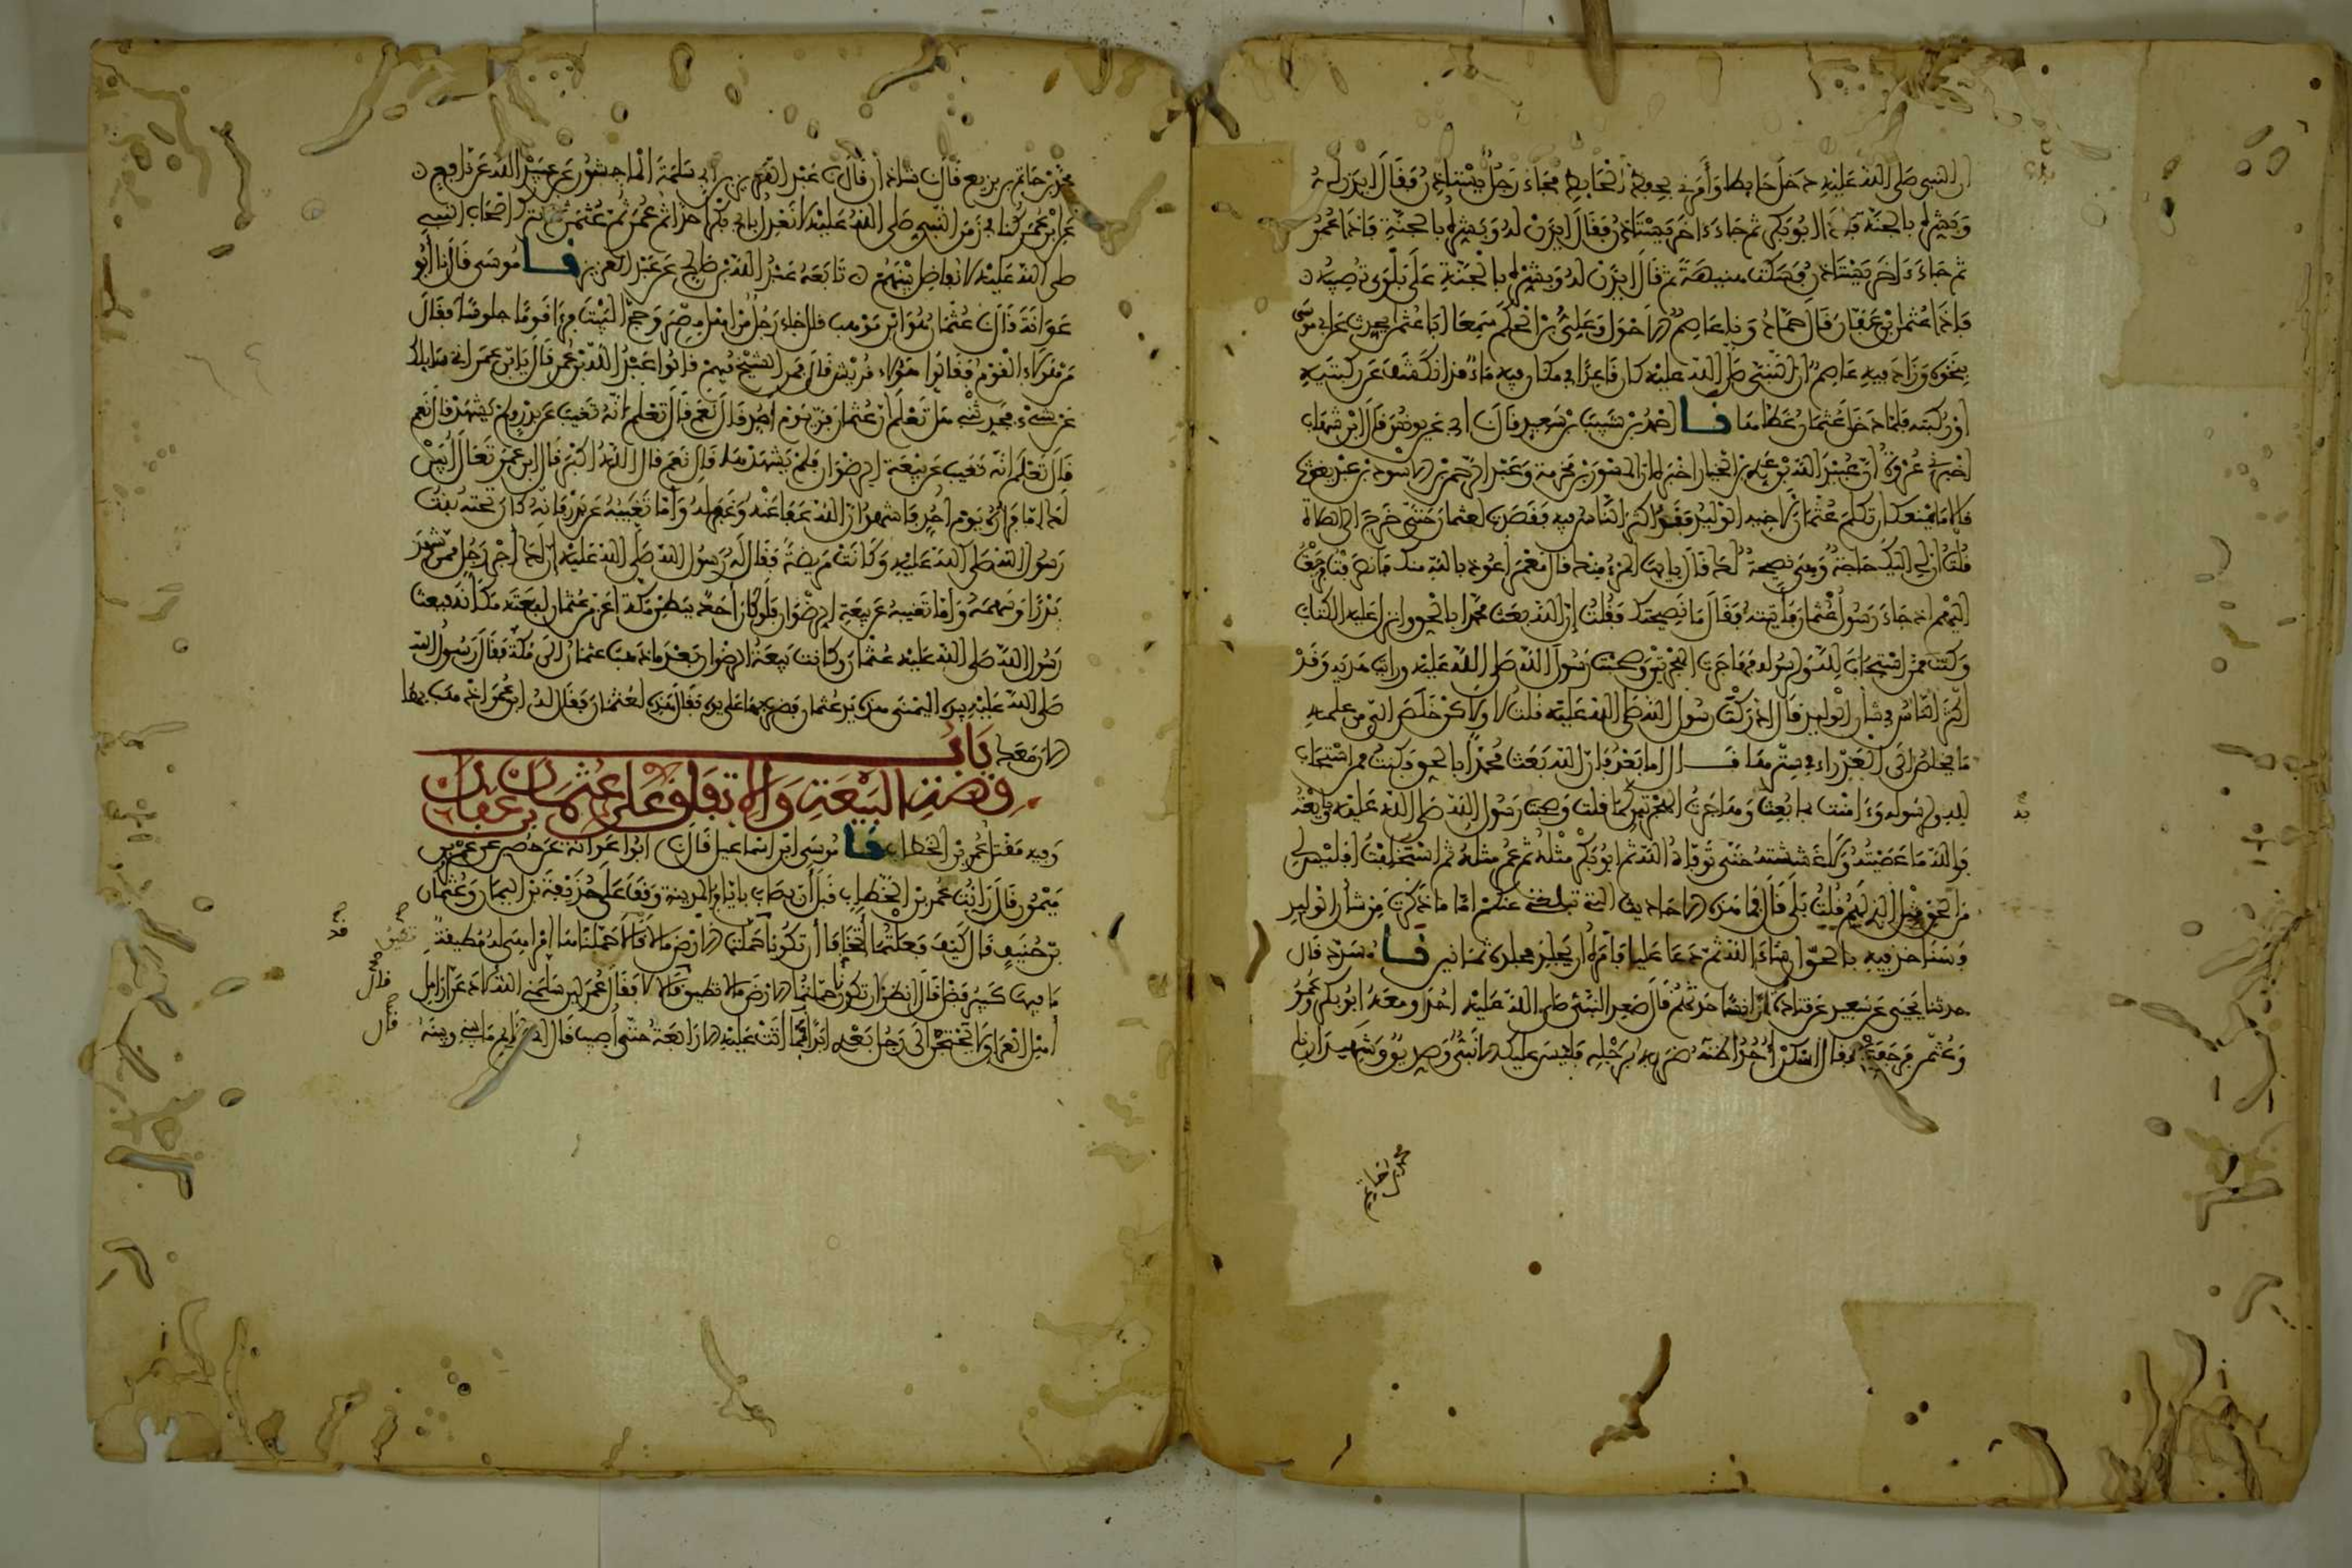 ان النبي صلى الله عليه دخل حائطا وأمرني بحفظ الحائط فجاء رجل يستأذن فقال ايذن له
وبشره بالجنة فإذا ابو بكر ثم جاء ءاخر يستأذن فقال ايذن له وبشره بالجنة فإذا عمر
ثم جاء ءاخر يستأذن فسكت هنيهة ثم قال ايذن له وبشره بالجنة على بلوى تصيبه
فإذا عثمان بن عفان قال حماد وفا عاصم الاحول وعلي بن الحكم سمعا ابا عثمان يحدث عن ابي موسى
بنحوه وزاد فيه عاصم ان النبي صلى الله عليه كان قاعدا في مكان فيه ماء قد انكشف عن ركبتيه
او ركبته فلما دخل عثمان غطاها نا احمد بن شبيب بن سعيد قال ن ابي عن يونس قال ابن شهاب
اخبرني عروة ان عبيد الله بن عدي بن الخيار اخبره ان المسور بن مخرمة وعبد الرحمن بن الاسود بن عبد يغوث
قالا ما يمنعك ان تكلم عثمان لاخيه الوليد فقد اكثر الناس فيه فقصدت لعثمان حتى خرج الى الصلاة
قلت ان لي اليك حاجة وهي نصيحة لك قال يايها المرء منك قال معمر اعوذ بالله منك فانصرفت فرجعت
اليهم اذ جاء رسول عثمان فأتيته فقال ما نصيحتك فقلت ان الله بعث محمدا بالحق وانزل عليه الكتاب
وكنت ممن استجاب لله ولرسوله فهاجرت الهجرتين وصحبت رسول الله صلى الله عليه ورايت هديه وقد
اكثر الناس في شأن الوليد قال ادركت رسول الله صلى الله عليه قلت لا ولاكن خلص الي من علمه
ما يخلص الى العذراء في سترها قال اما بعد فان الله بعث محمدا بالحق فكنت ممن استجاب
لله ولرسوله وءامنت بما بعث به وهاجرت الهجرتين كما قلت وصحبت رسول الله صلى الله عليه وبايعته
فوالله ما عصيته ولا غششته حتى توفاه الله ثم ابو بكر مثله ثم عمر مثله ثم استخلفت افليس لي
من الحق مثل الذي لهم قلت بلى قال فما هذه الاحاديث التي تبلغني عنكم اما ما ذكرت من شأن الوليد
فسناخذ فيه بالحق ان شاء الله ثم دعا عليا فأمره ان يجلد فجلده ثمانين نا مسدد قال
حدثنا يحيى عن سعيد عن قتادة ان انسا حدثهم قال صعد النبي صلى الله عليه احدا ومعه ابو بكر وعمر
وعثمن فرجف فقال اسكن احد اظنه ضربه برجله فليس عليك الا نبي وصديق وشهيدان
محمد بن حاتم
محمد بن حاتم بن بزيع قال ن شاذان قال ن عبد العزيز بن ابي سلمة الماجشون عن عبيد الله عن نافع
عن ابن عمر كنا في زمن النبي صلى الله عليه لا نعدل بابي بكر احدا ثم عمر ثم عثمن ثم نترك اصحاب النبي
صلى الله عليه لا نفاضل بينهم تابعه عبد الله بن صالح عن عبد العزيز نا موسى قال نا ابو
عوانة قال ن عثمان هو ابن موهب قال جاء رجل من اهل مصر وحج البيت فرءا قوما جلوسا فقال
من هؤلاء القوم فقالوا هؤلاء قريش قال فمن الشيخ فيهم قالوا عبد الله بن عمر قال يا ابن عمر اني سائلك
عن شيء فحدثني هل تعلم ان عثمان فر يوم احد قال نعم قال تعلم انه تغيب عن بدر ولم يشهد قال نعم
قال تعلم انه تغيب عن بيعة الرضوان فلم يشهدها قال نعم قال الله اكبر قال ابن عمر تعال ابين
لك اما فراره يوم احد فاشهد ان الله عفا عنه وغفر له واما تغيبه عن بدر فانه كان تحته بنت
رسول الله صلى الله عليه وكانت مريضة فقال له رسول الله صلى الله عليه ان لك اجر رجل ممن شهد
بدرا وسهمه واما تغيبه عن بيعة الرضوان فلو كان احد ببطن مكة اعز من عثمان لبعثه مكانه فبعث
رسول الله صلى الله عليه عثمان وكانت بيعة الرضوان بعد ما ذهب عثمان الى مكة فقال رسول الله
صلى الله عليه بيده اليمنى هذه يد عثمان فضرب بها على يده فقال هذه لعثمان فقال له ابن عمر اذهب بها
الان معك باب
قصة البيعة والاتفاق على عثمان بن عفان
وفيه مقتل عمر بن الخطاب نا موسى ابن اسماعيل قال ن ابوا عوانة عن حصين عن عمرو بن
ميمون قال رايت عمر بن الخطاب قبل ان يصاب بايام بالمدينة وقف على حذيفة بن اليمان وعثمان
بن حنيف قال كيف فعلتما اتخافا ان تكونا حملتما الارض ما لا قالا حملناها امرا هي له مطيقة
ما فيها كبير فضل قال انظرا ان تكونا حملتما الارض ما لا تطيق قالا لا فقال عمر لئن سلمني الله لادعن ارامل
اهل العراق لا يحتجن الى رجل بعدي ابدا فما اتت عليه الا رابعة حتى اصيب قال اني لقائم ما بيني وبينه